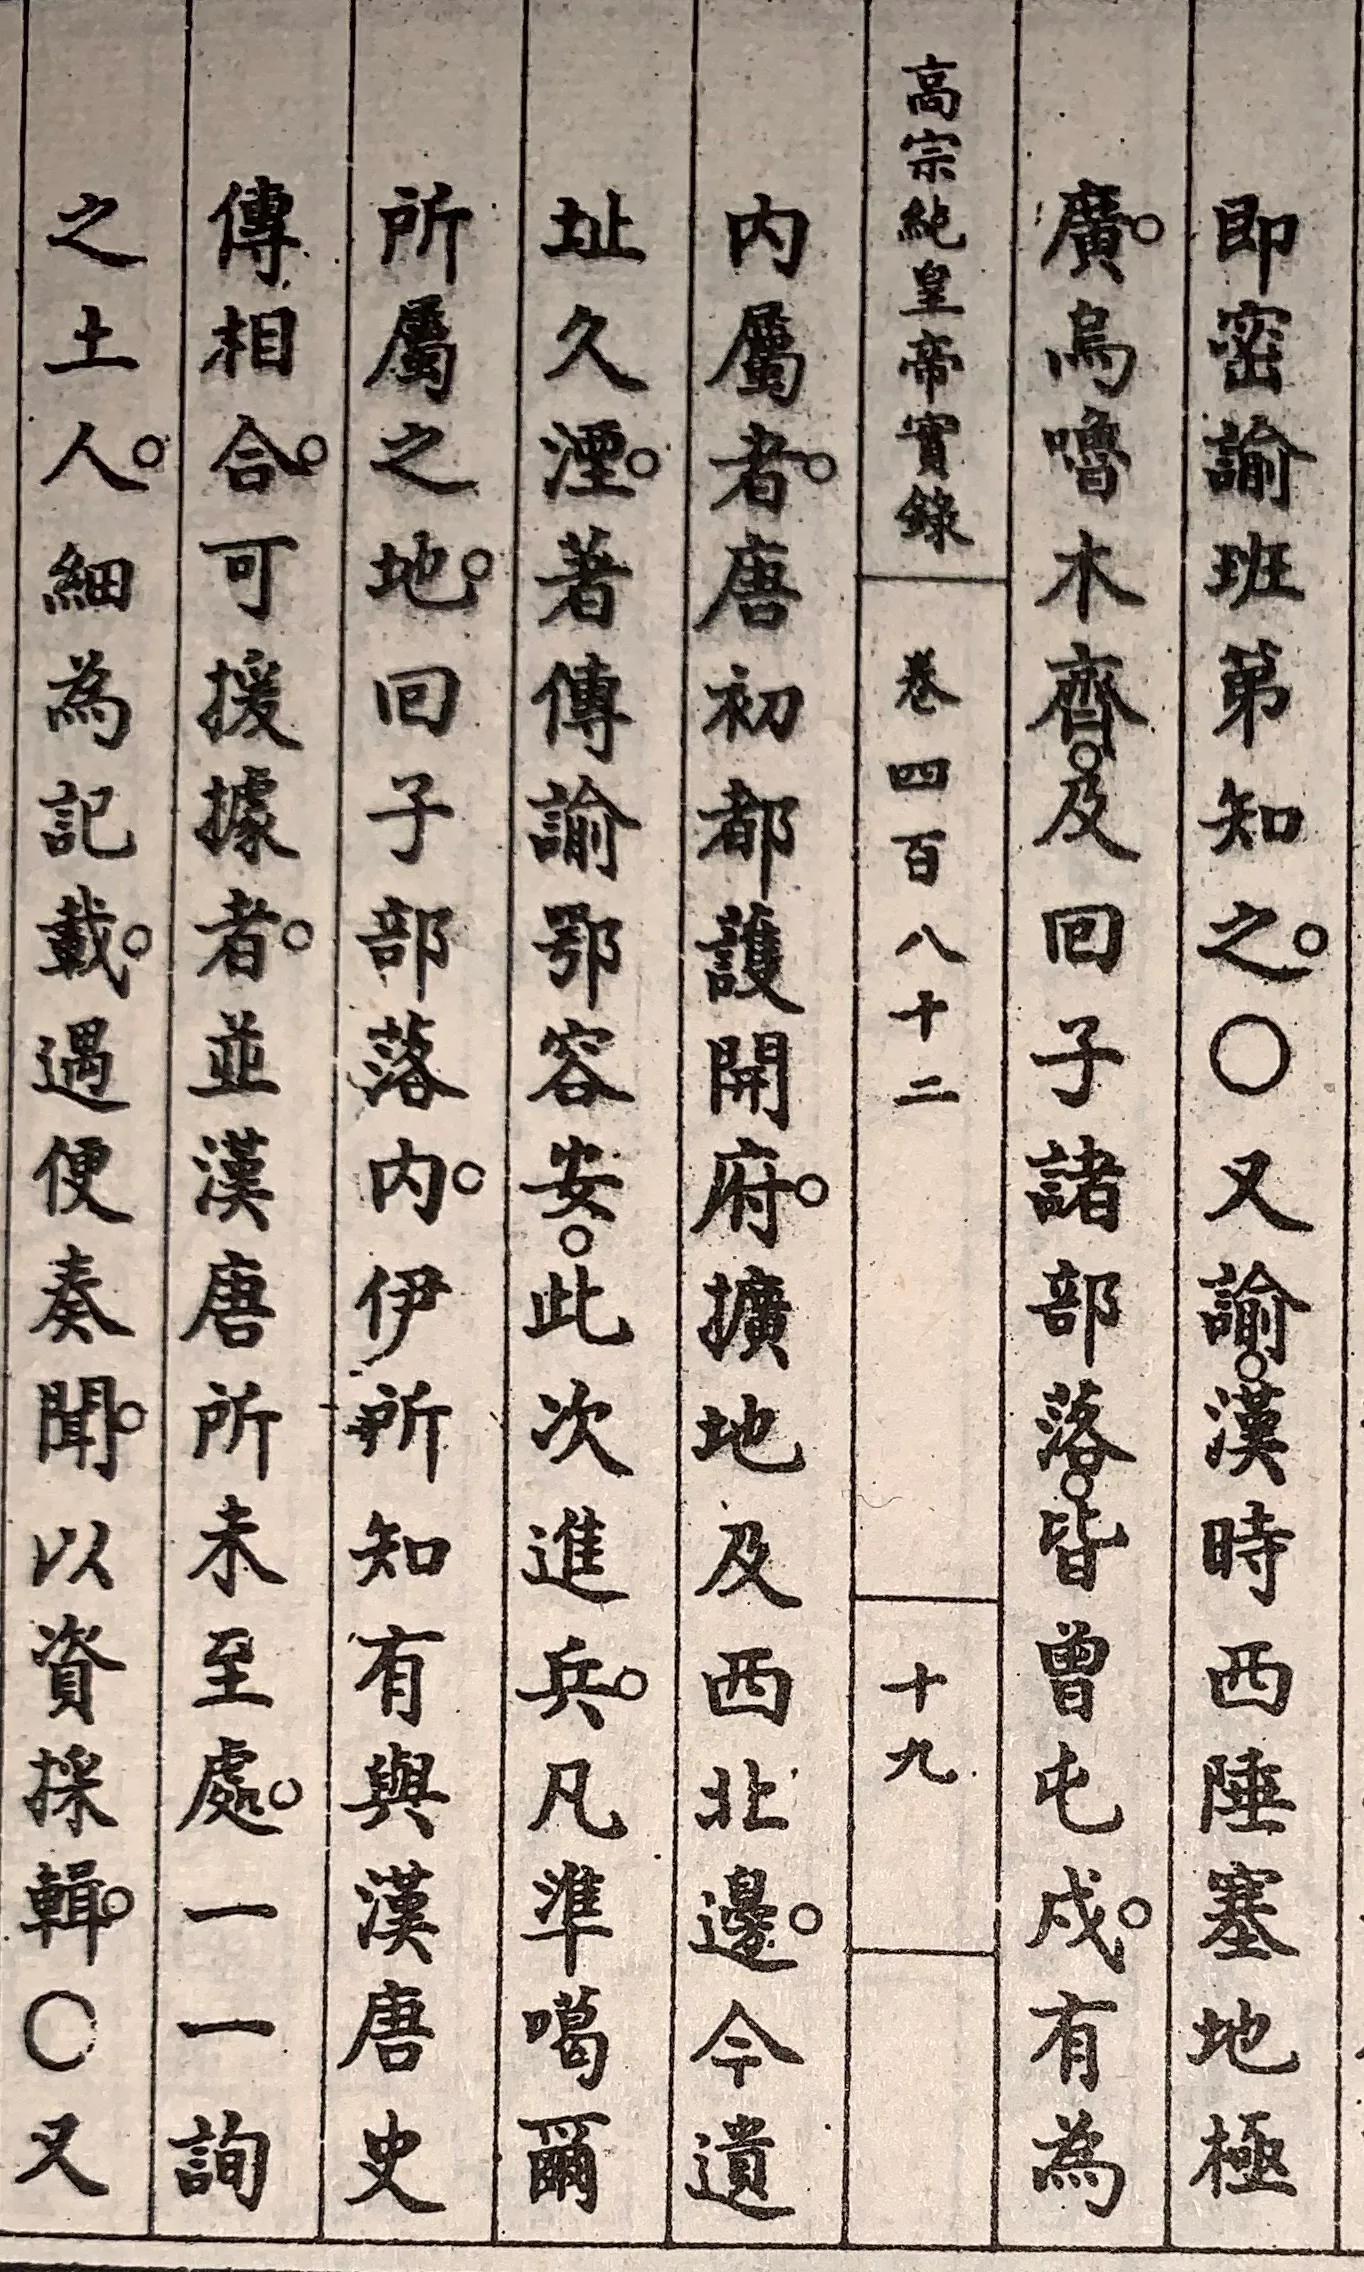 即密諭班第知之。○又諭。漢時西陲塞地極
廣。烏嚕木齊。及回子諸部落。皆曾屯戍。有為
高宗純皇帝實錄 卷四百八十二 十九
內屬者。唐初都護開府。擴地及西北邊。今遺
址久湮。著傳諭鄂容安。此次進兵。凡準噶爾
所屬之地。回子部落內。伊所知有與漢唐史
傳相合。可援據者。並漢唐所未至處。一一詢
之土人。細為記載。遇便奏聞。以資採輯。○又